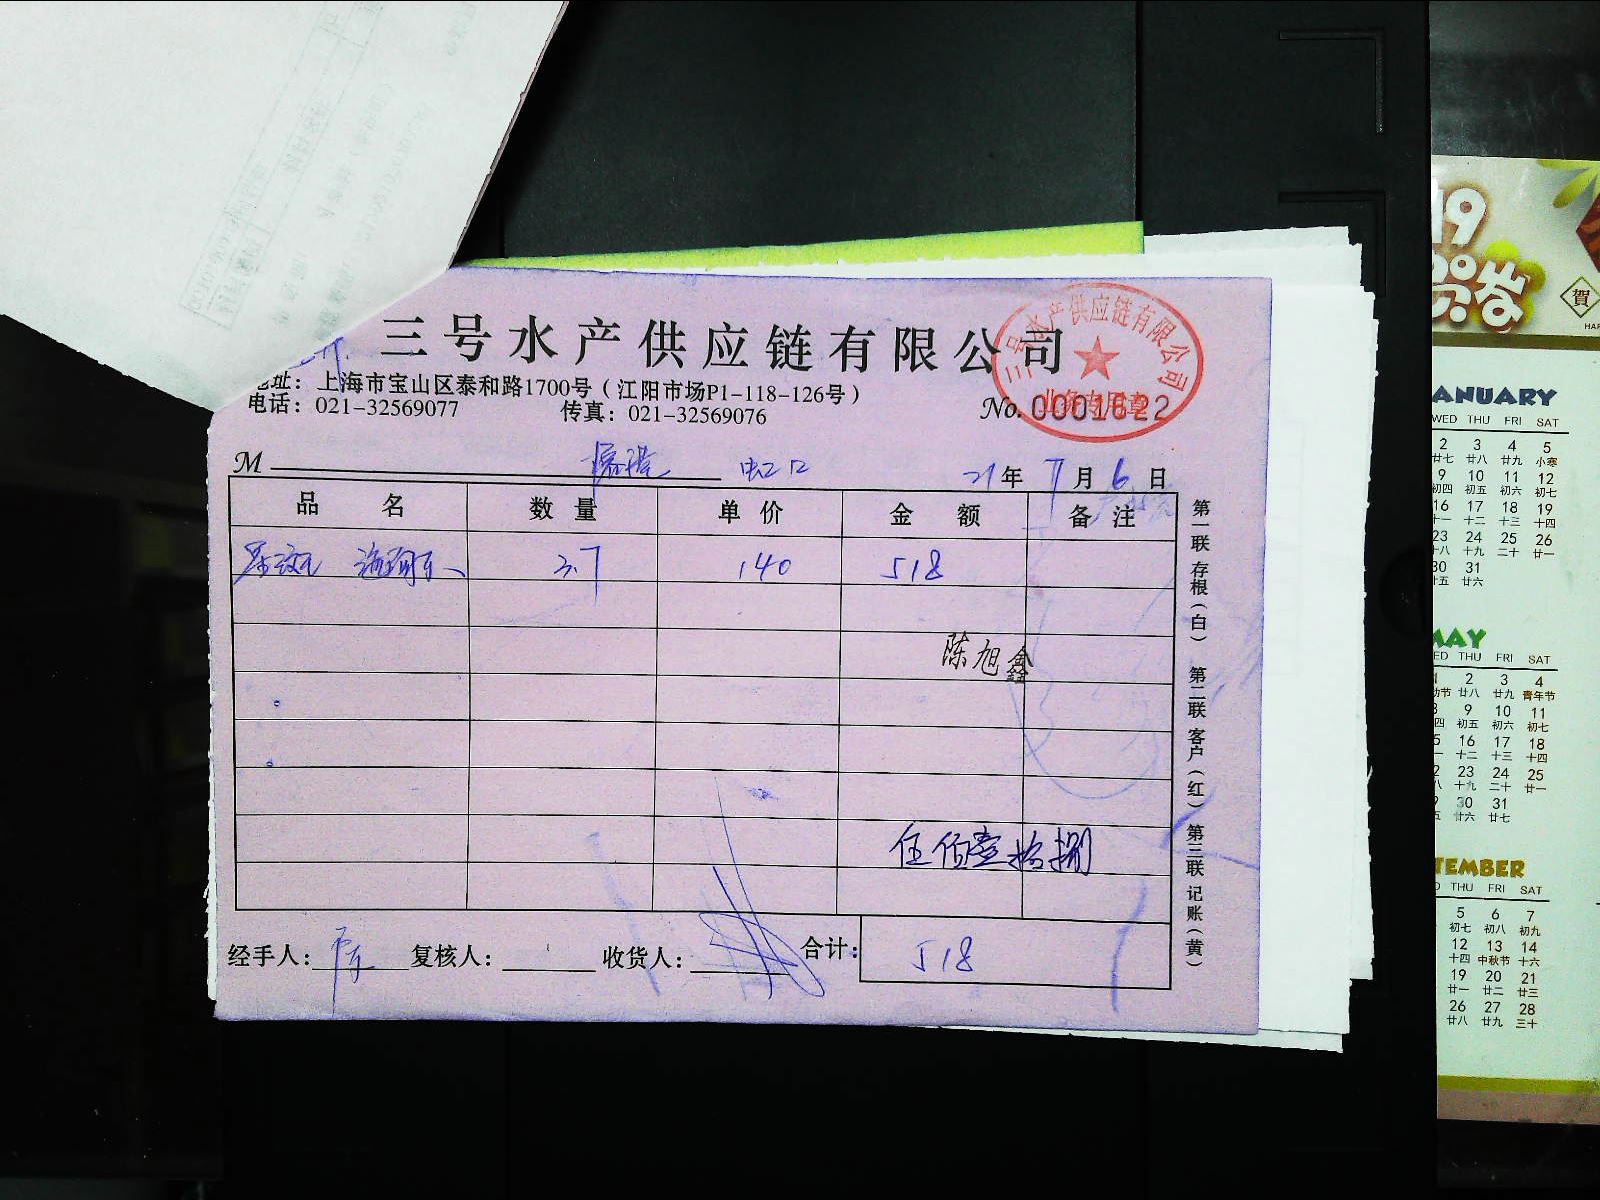 三号水产供应链有限公司
地址：上海市宝山区泰和路1700号（江阳市场P1-118-126号）
电话：021-32569077 传真：021-32569076
No. 0001622
三号水产供应链有限公司
业务专用章
M 虹口 21年 7月 6日
品名 数量 单价 金额 备注
3.7 140 518
陈旭鑫
伍佰壹拾捌
经手人： 复核人： 收货人： 合计： 518
第一联 存根（白） 第二联 客户（红） 第三联 记账（黄）
19
賀
ANUARY
WED THU FRI SAT
2 3 4 5
廿七 廿八 廿九 小寒
9 10 11 12
初四 初五 初六 初七
16 17 18 19
十一 十二 十三 十四
23 24 25 26
十八 十九 二十 廿一
30 31
廿五 廿六
MAY
ED THU FRI SAT
1 2 3 4
动节 廿八 廿九 青年节
8 9 10 11
初四 初五 初六 初七
5 16 17 18
十二 十三 十四
2 23 24 25
十八 十九 二十 廿一
9 30 31
五 廿六 廿七
TEMBER
D THU FRI SAT
5 6 7
初七 初八 初九
12 13 14
十四 中秋节 十六
19 20 21
廿一 廿二 廿三
26 27 28
廿八 廿九 三十